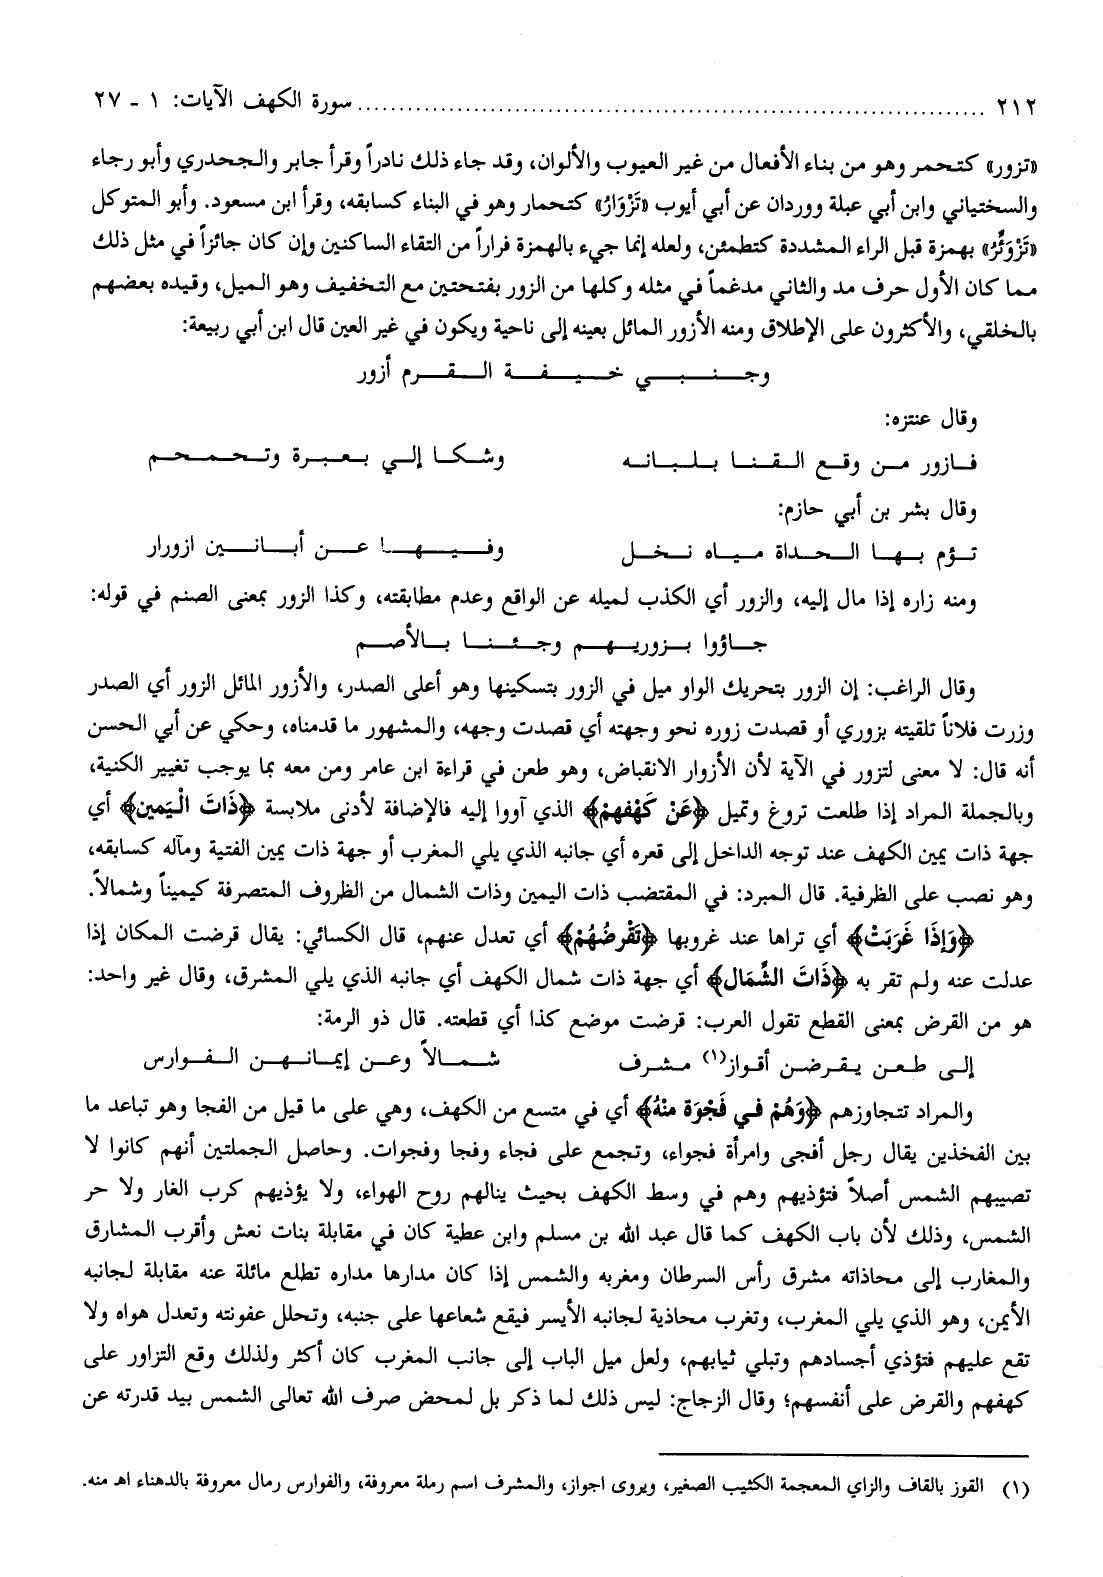 ٢١٢ ........................................................................ سورة الكهف الآيات: ١ - ٢٧
«تزور» كتحمر وهو من بناء الأفعال من غير العيوب والألوان، وقد جاء ذلك نادراً وقرأ جابر والجحدري وأبو رجاء
والسختياني وابن أبي عبلة ووردان عن أبي أيوب «تَزْوَارُ» كتحمار وهو في البناء كسابقه، وقرأ ابن مسعود. وأبو المتوكل
«تَزْوَئِرُّ» بهمزة قبل الراء المشددة كتطمئن، ولعله إنما جيء بالهمزة فراراً من التقاء الساكنين وإن كان جائزاً في مثل ذلك
مما كان الأول حرف مد والثاني مدغماً في مثله وكلها من الزور بفتحتين مع التخفيف وهو الميل، وقيده بعضهم
بالخلقي، والأكثرون على الإطلاق ومنه الأزور المائل بعينه إلى ناحية ويكون في غير العين قال ابن أبي ربيعة:
وجنبي خيفة القرم أزور
وقال عنتزه:
فازور من وقع القنا بلبانه وشكا إلي بعبرة وتحمحم
وقال بشر بن أبي حازم:
تؤم بها الحداة مياه نخل وفيها عن أبانين ازورار
ومنه زاره إذا مال إليه، والزور أي الكذب لميله عن الواقع وعدم مطابقته، وكذا الزور بمعنى الصنم في قوله:
جاؤوا بزوريهم وجئنا بالأصم
وقال الراغب: إن الزور بتحريك الواو ميل في الزور بتسكينها وهو أعلى الصدر، والأزور المائل الزور أي الصدر
وزرت فلاناً تلقيته بزوري أو قصدت زوره نحو وجهته أي قصدت وجهه، والمشهور ما قدمناه، وحكي عن أبي الحسن
أنه قال: لا معنى لتزور في الآية لأن الأزوار الانقباض، وهو طعن في قراءة ابن عامر ومن معه بما يوجب تغيير الكنية،
وبالجملة المراد إذا طلعت تروغ وتميل ﴿عَنْ كَهْفِهِمْ﴾ الذي آووا إليه فالإضافة لأدنى ملابسة ﴿ذَاتَ الْيَمِينِ﴾ أي
جهة ذات يمين الكهف عند توجه الداخل إلى قعره أي جانبه الذي يلي المغرب أو جهة ذات يمين الفتية ومآله كسابقه،
وهو نصب على الظرفية. قال المبرد: في المقتضب ذات اليمين وذات الشمال من الظروف المتصرفة كيميناً وشمالاً.
﴿وَإِذَا غَرَبَتْ﴾ أي تراها عند غروبها ﴿تَقْرِضُهُمْ﴾ أي تعدل عنهم، قال الكسائي: يقال قرضت المكان إذا
عدلت عنه ولم تقر به ﴿ذَاتَ الشِّمَالِ﴾ أي جهة ذات شمال الكهف أي جانبه الذي يلي المشرق، وقال غير واحد:
هو من القرض بمعنى القطع تقول العرب: قرضت موضع كذا أي قطعته. قال ذو الرمة:
إلى طعن يقرضن أقواز(١) مشرف شمالاً وعن إيمانهن الفوارس
والمراد تتجاوزهم ﴿وَهُمْ في فَجْوَة منهُ﴾ أي في متسع من الكهف، وهي على ما قيل من الفجا وهو تباعد ما
بين الفخذين يقال رجل أفجى وامرأة فجواء، وتجمع على فجاء وفجا وفجوات. وحاصل الجملتين أنهم كانوا لا
تصيبهم الشمس أصلاً فتؤذيهم وهم في وسط الكهف بحيث ينالهم روح الهواء، ولا يؤذيهم كرب الغار ولا حر
الشمس، وذلك لأن باب الكهف كما قال عبد الله بن مسلم وابن عطية كان في مقابلة بنات نعش وأقرب المشارق
والمغارب إلى محاذاته مشرق رأس السرطان ومغربه والشمس إذا كان مدارها مداره تطلع مائلة عنه مقابلة لجانبه
الأيمن، وهو الذي يلي المغرب، وتغرب محاذية لجانبه الأيسر فيقع شعاعها على جنبه، وتحلل عفونته وتعدل هواه ولا
تقع عليهم فتؤذي أجسادهم وتبلي ثيابهم، ولعل ميل الباب إلى جانب المغرب كان أكثر ولذلك وقع التزاور على
كهفهم والقرض على أنفسهم؛ وقال الزجاج: ليس ذلك لما ذكر بل لمحض صرف الله تعالى الشمس بيد قدرته عن
(١) القوز بالقاف والزاي المعجمة الكثيب الصغير، ويروى اجواز، والمشرف اسم رملة معروفة، والفوارس رمال معروفة بالدهناء اهـ منه.